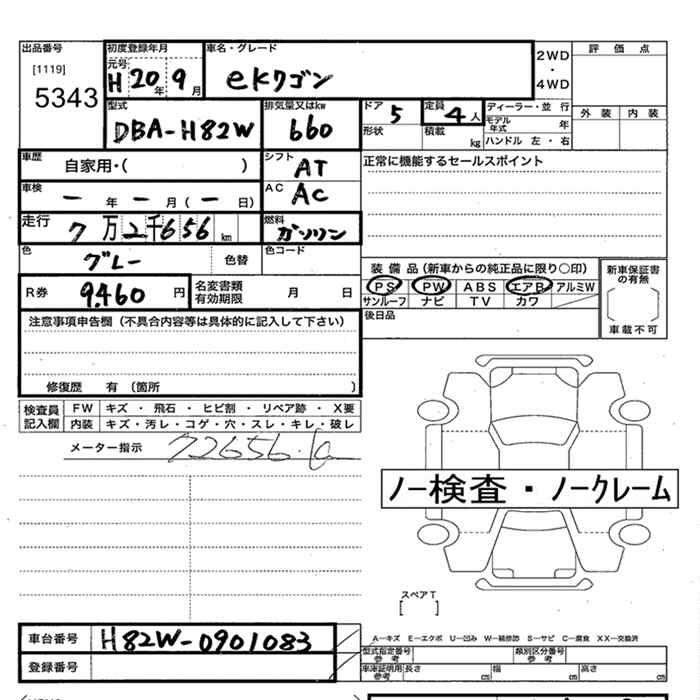 出品番号 初度登録年月 車名・グレード 評価点
[1119] 元号 H 20年 9月 eKワゴン 2WD・4WD
5343
型式 排気量又はkw ドア 定員 ディーラー・並行 外装 内装
DBA-H82W 660 5 4人 モデル年式 年
形状 積載 kg ハンドル 左・右
車歴 自家用・( ) シフト AT 正常に機能するセールスポイント
車検 ー年ー月(ー日) AC AC
走行 7万2千656km 燃料 ガソリン
色 グレー 色替 色コード
装備品(新車からの純正品に限り○印) 新車保証書の有無
R券 9,460円 名変書類有効期限 月 日 PS PW ABS エアB アルミW
サンルーフ ナビ TV カワ
[ ]
注意事項申告欄(不具合内容等は具体的に記入して下さい) 後日品 車載不可
修復歴 有 (箇所 )
検査員記入欄 FW キズ・飛石・ヒビ割・リペア跡・X要
内装 キズ・汚レ・コゲ・穴・スレ・キレ・破レ
メーター指示 72656.k
ノー検査・ノークレーム
スペアT
[ ]
車台番号 H82W-0901083 A−キズ E−エクボ U−凹み W−補修跡 S−サビ C−腐食 XX−交換済
型式指定番号参考 類別区分番号参考
登録番号 車庫証明用参考 長さ cm 幅 cm 高さ cm